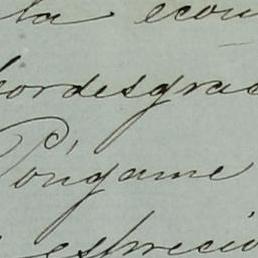 la econ
por desgrac
Póngame
es preciso